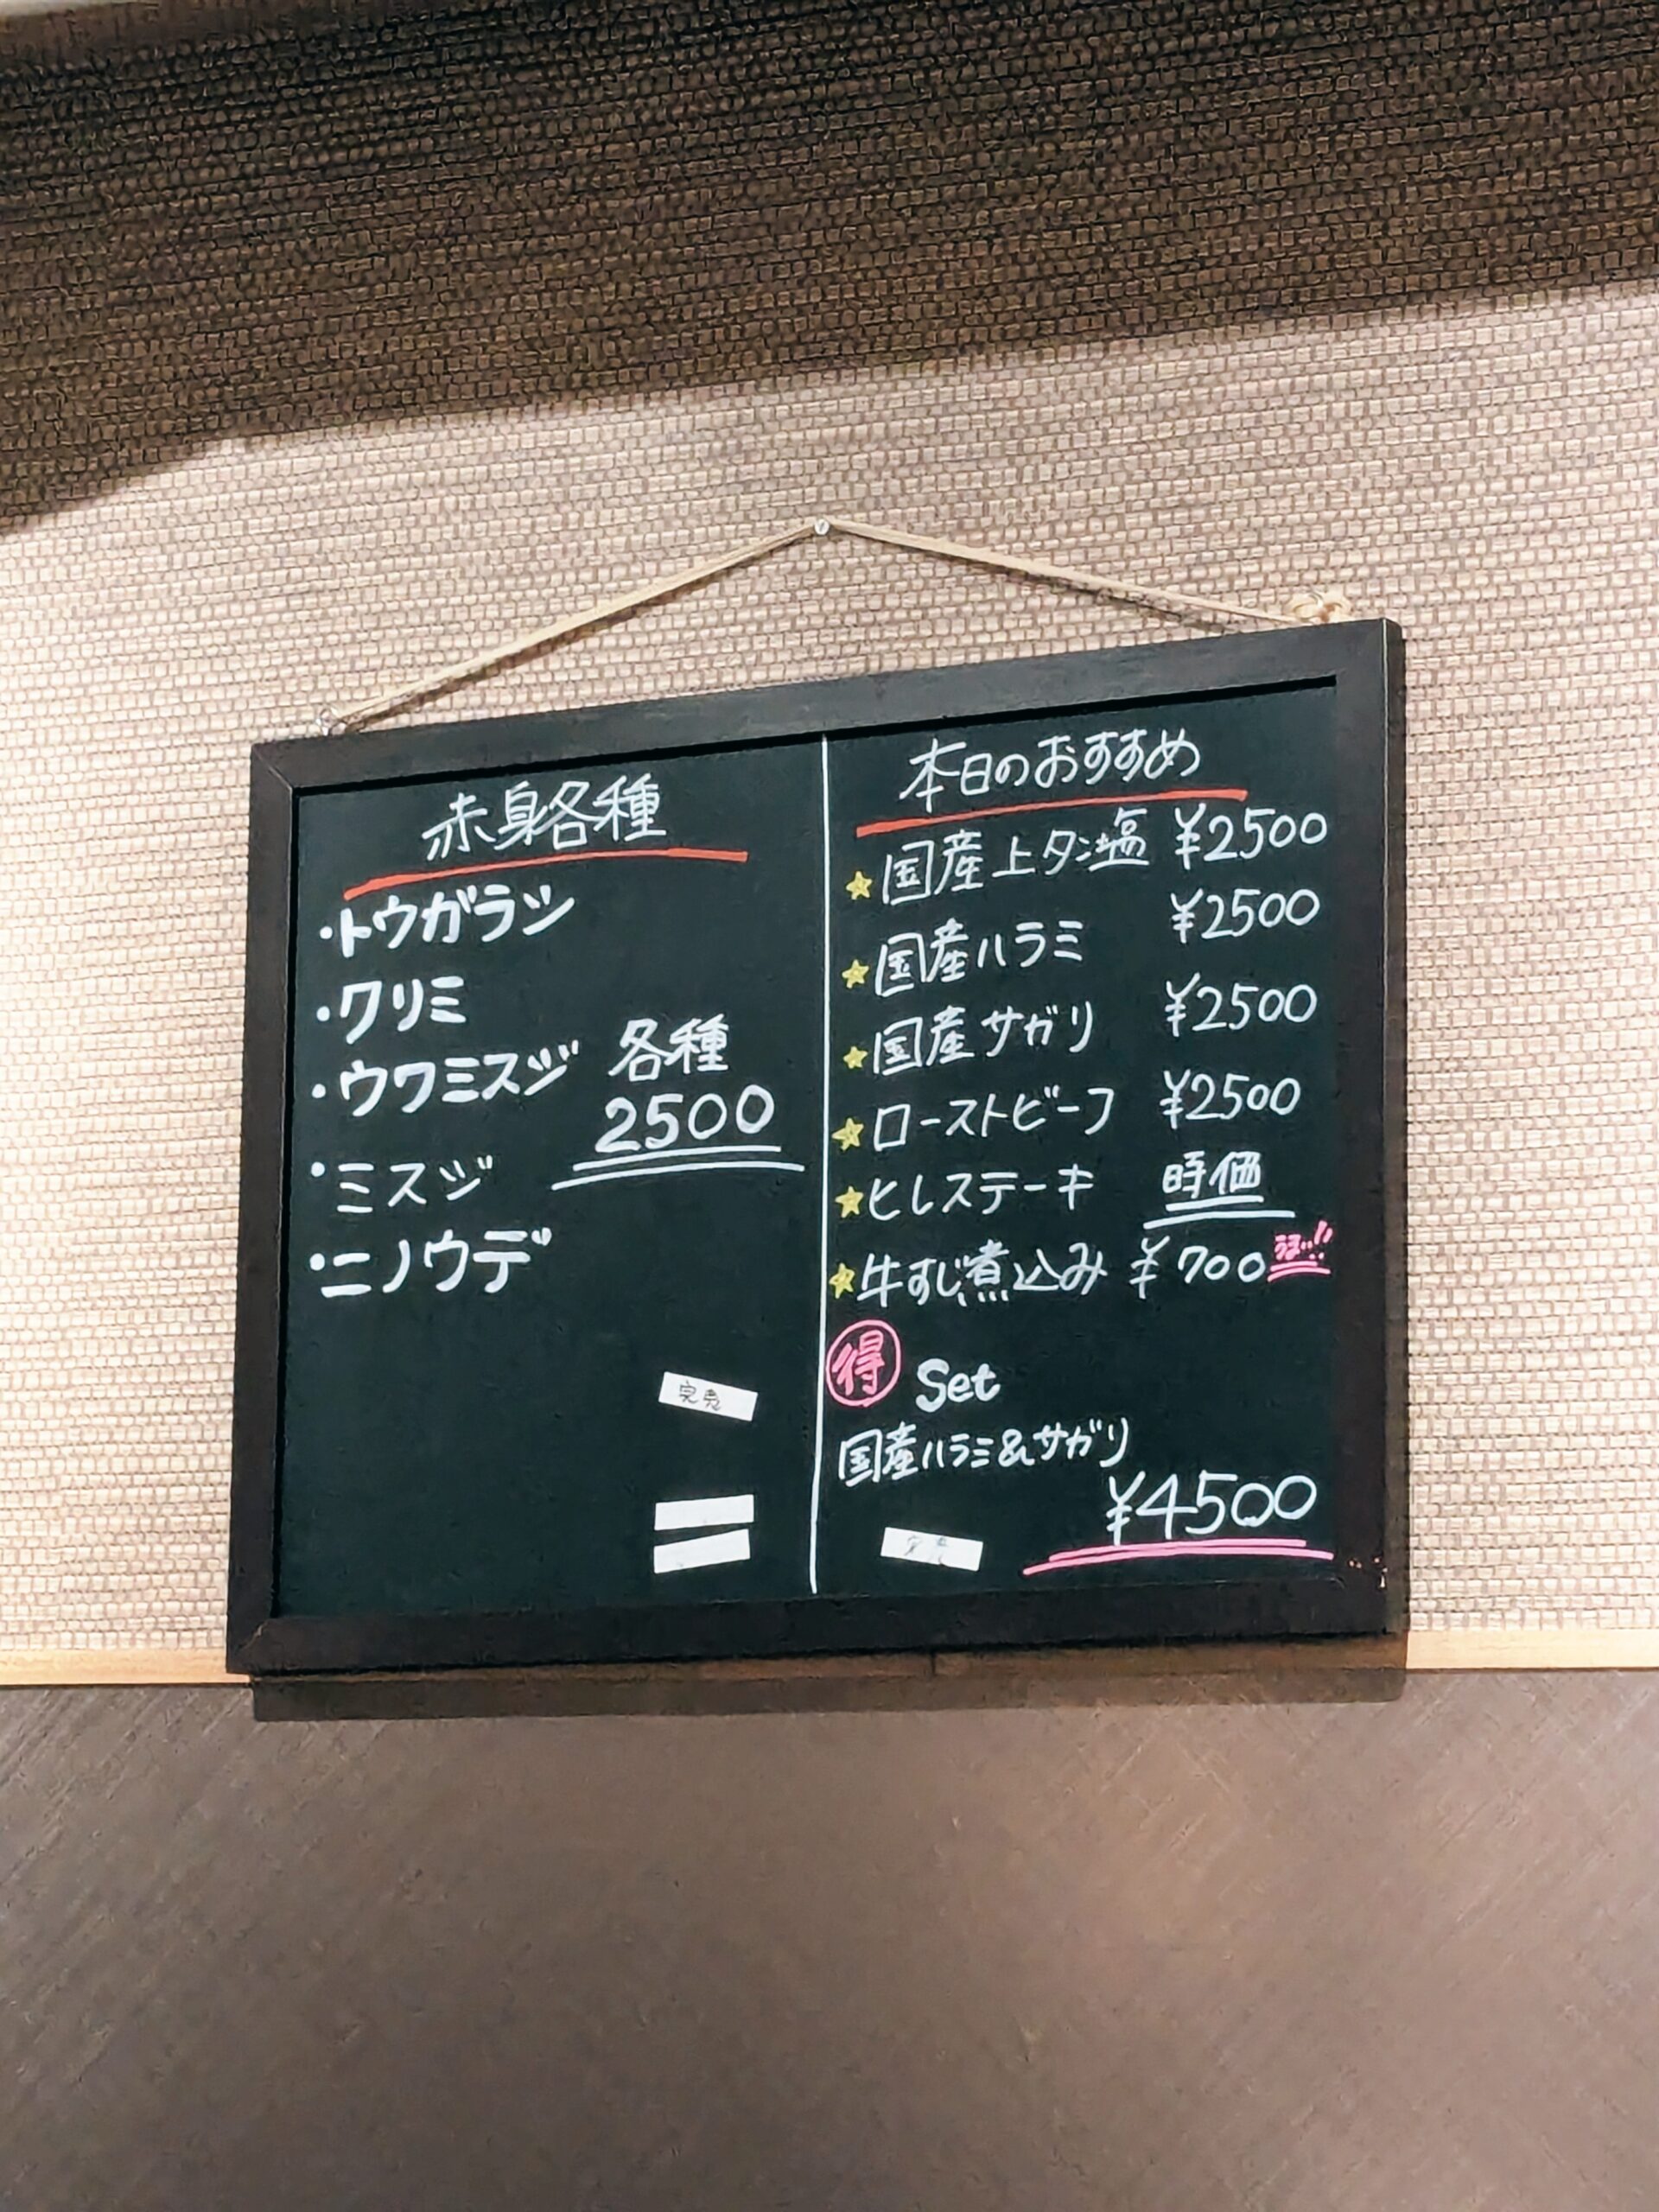 赤身各種
・トウガラシ
・クリミ
・ウワミスジ
・ミスジ
・ニノウデ
各種
2500
完売
本日のおすすめ
★国産上タン塩 ¥2500
★国産ハラミ ¥2500
★国産サガリ ¥2500
★ローストビーフ ¥2500
★ヒレステーキ 時価
★牛すじ煮込み ¥700 うまっ!!
得 Set
国産ハラミ&サガリ
¥4500
完売